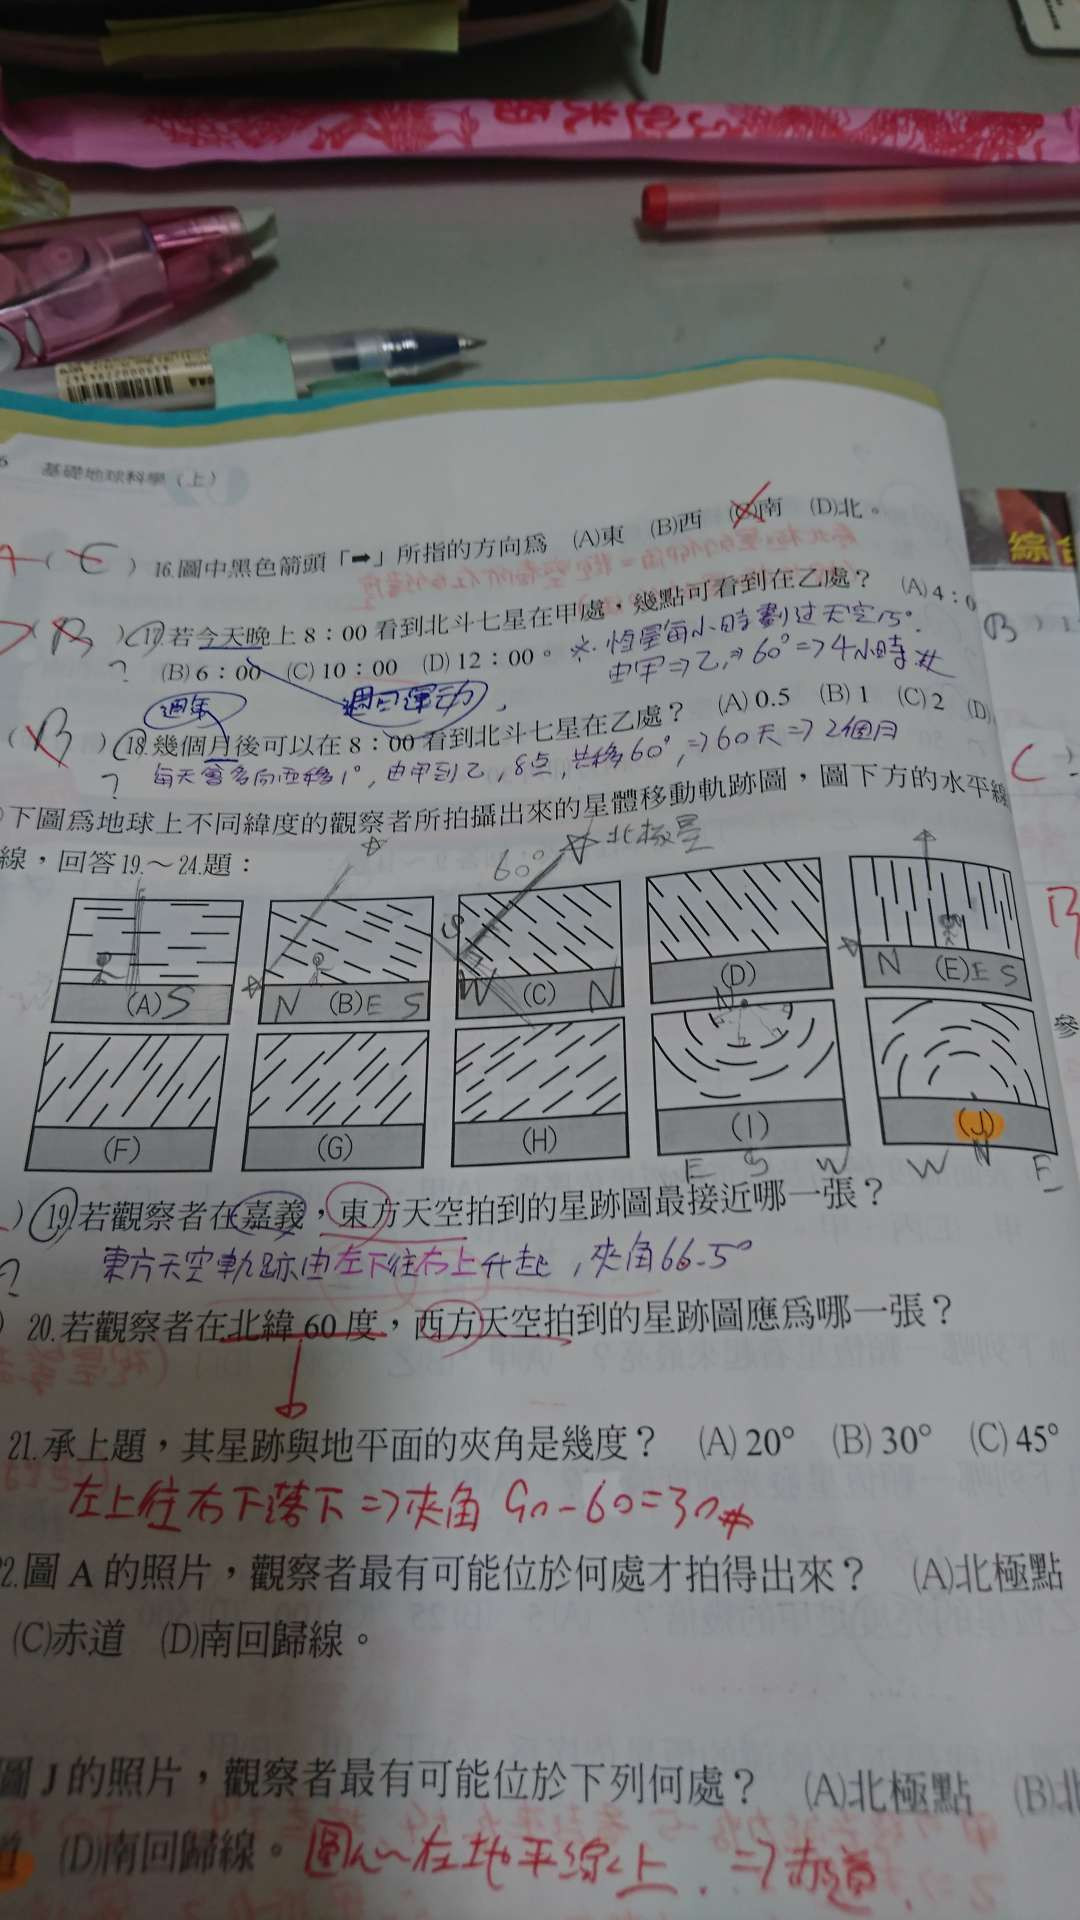 基礎地球科學（上）
16.圖中黑色箭頭「➡」所指的方向為 (A)東 (B)西 (C)南 (D)北。
17.若今天晚上 8：00 看到北斗七星在甲處，幾點可看到在乙處？ (A) 4：0
(B) 6：00 (C) 10：00 (D) 12：00。
※恆星每小時劃过天空15°.
由甲⇒乙,⇒60°⇒4小時
週年
週日運动
18.幾個月後可以在 8：00 看到北斗七星在乙處？ (A) 0.5 (B) 1 (C) 2 (D)
每天會多向西移1°,由甲到乙,8点,共移60°,⇒60天⇒2個月
下圖為地球上不同緯度的觀察者所拍攝出來的星體移動軌跡圖，圖下方的水平線
線，回答19.～24.題：
60°
北極星
(A) S
N (B) E S
W (C) N
(D)
N (E) E S
(F)
(G)
(H)
N
(I)
(J)
E S W
W N E
19.若觀察者在嘉義，東方天空拍到的星跡圖最接近哪一張？
東方天空軌跡由左下往右上升起,夾角66.5°
20.若觀察者在北緯 60 度，西方天空拍到的星跡圖應為哪一張？
21.承上題，其星跡與地平面的夾角是幾度？ (A) 20° (B) 30° (C) 45°
左上往右下落下⇒夾角 90-60=30
22.圖 A 的照片，觀察者最有可能位於何處才拍得出來？ (A)北極點
(C)赤道 (D)南回歸線。
圖 J 的照片，觀察者最有可能位於下列何處？ (A)北極點 (B)北
(D)南回歸線。
圓心在地平線上. ⇒赤道.
綜合
參